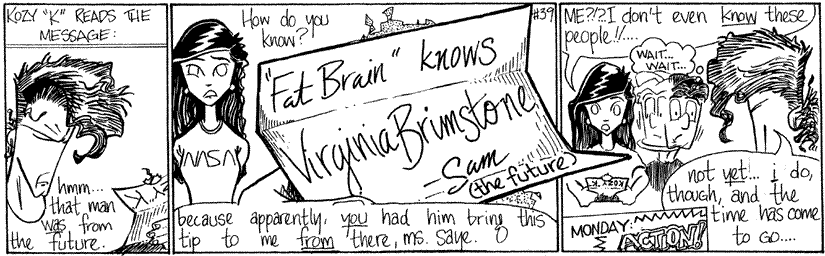 KOZY "K" READS THE
MESSAGE:
hmm...
that man
was from
the future.
How do you
know?
#39
"Fat Brain" knows
Virginia Brimstone
-Sam
(the future)
NASA
because apparently, you had him bring this
tip to me from there, ms. Saye.
ME?!?I don't even know these
people!!....
WAIT...
WAIT...
KOZY "K"
not yet... i do,
though, and the
time has come
to go....
MONDAY:
ACTION!